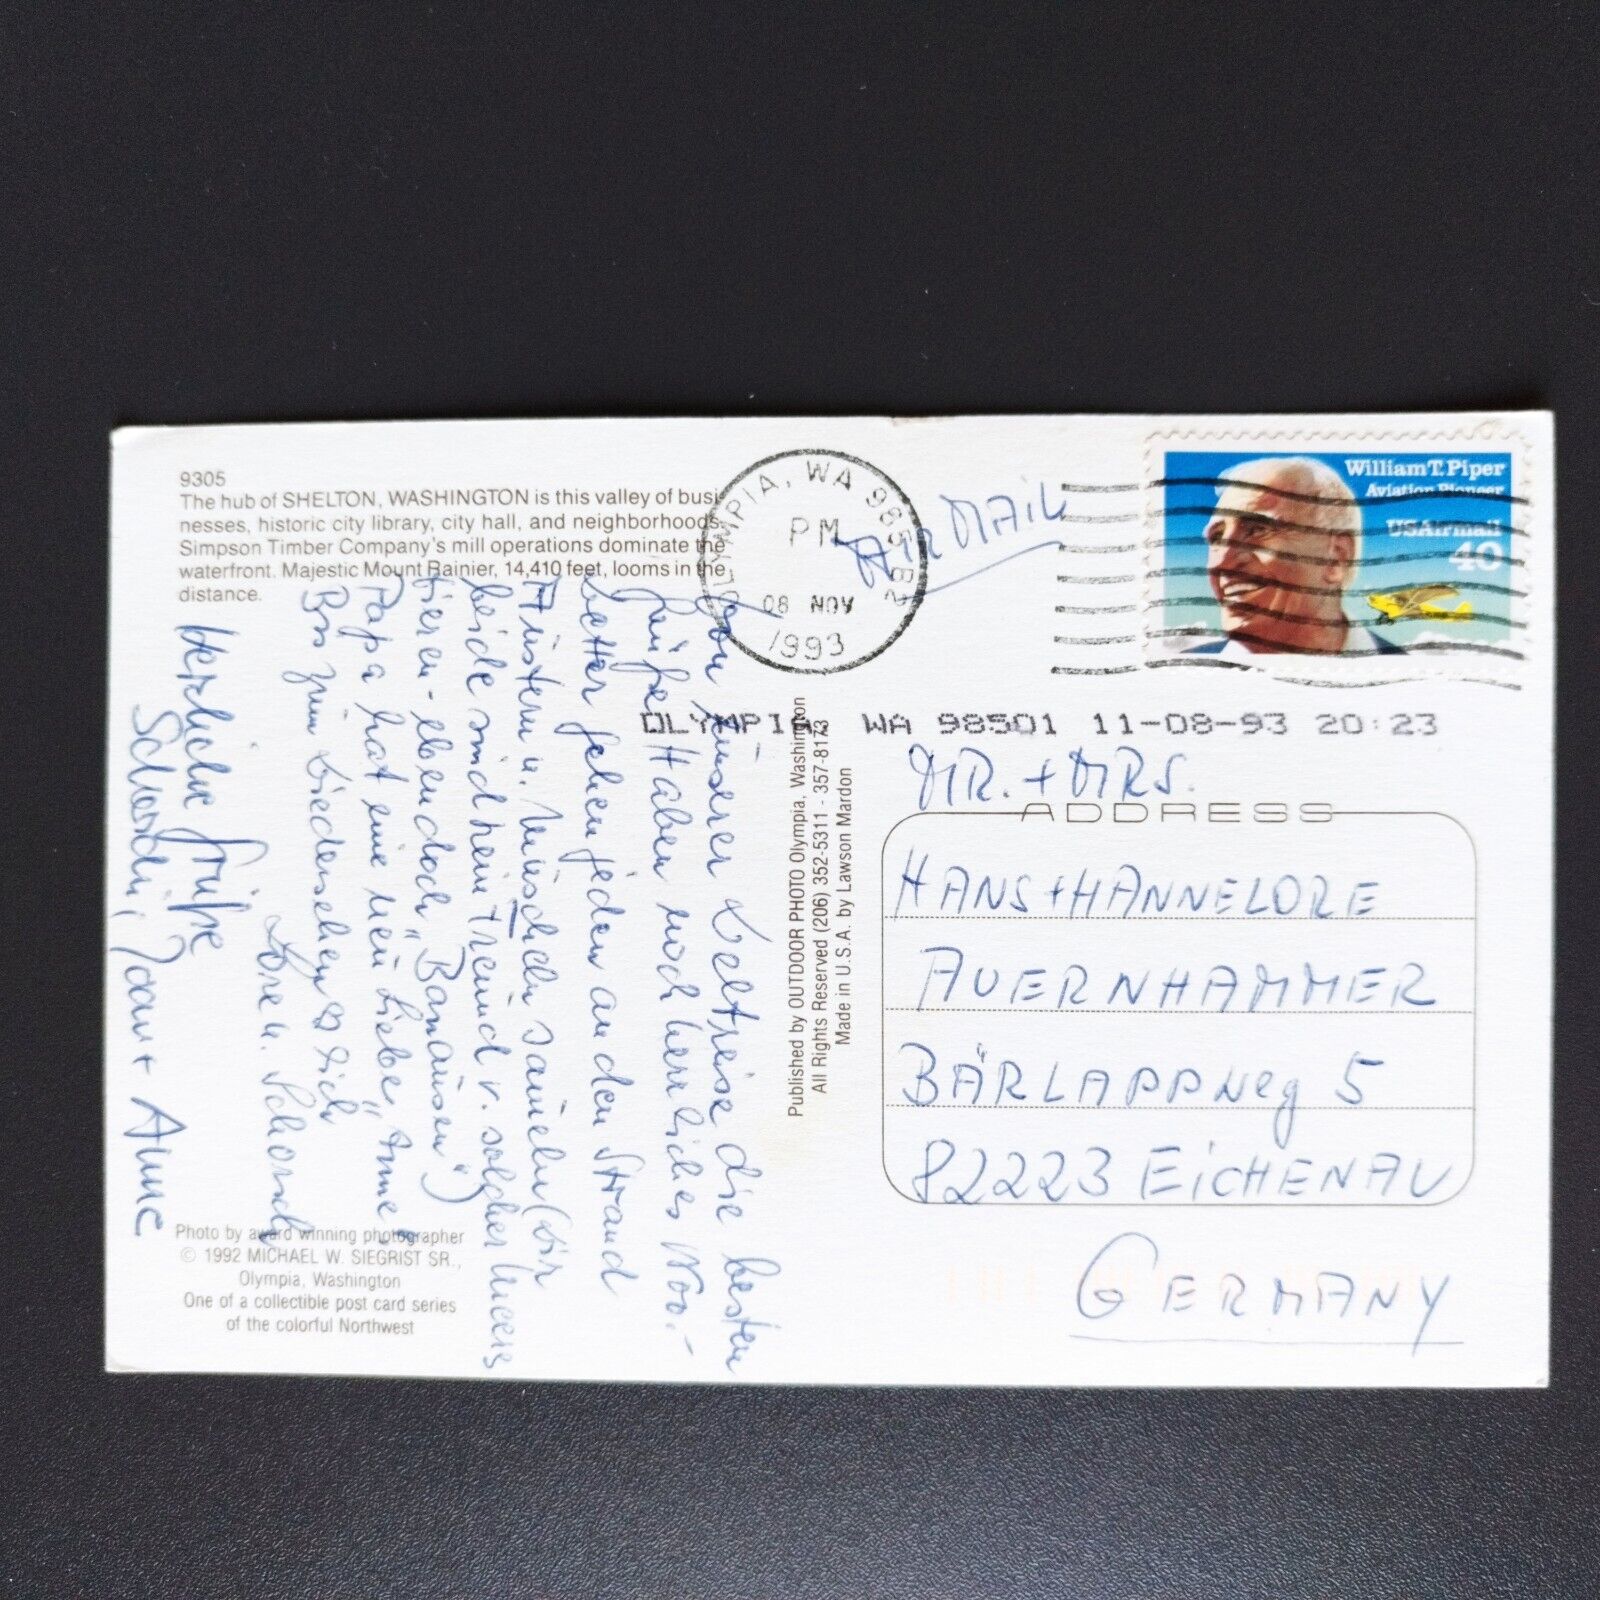 9305
The hub of SHELTON, WASHINGTON is this valley of busi-
nesses, historic city library, city hall, and neighborhoods.
Simpson Timber Company's mill operations dominate the
waterfront. Majestic Mount Rainier, 14,410 feet, looms in the
distance.
OLYMPIA, WA 985 82
PM
08 NOV
1993
AIR MAIL
William T. Piper
Aviation Pioneer
USAirmail
40
OLYMPIA, WA 98501 11-08-93 20:23
Von unserer Weltreise die besten
Grüße. Haben noch herrliches Nov.-
wetter gehen jeden an den Strand
Austern u. Muscheln sammeln (wir
beide sind kein Freund v. solchen Meeres
tieren - eben doch "Banausen")
Papa hat eine neue "Liebe" Anne
Bis zum Wiedersehen Dich
Lore u. Schorsch
Herzliche Grüße
Schorschi, + Anne
Published by OUTDOOR PHOTO Olympia, Washington
All Rights Reserved (206) 352-5311 - 357-8173
Made in U.S.A. by Lawson Mardon
MR. + MRS.
ADDRESS
HANS + HANNELORE
AUERNHAMMER
BÄRLAPPWeg 5
82223 EiCHENAU
GERMANY
Photo by award winning photographer
© 1992 MICHAEL W. SIEGRIST SR.,
Olympia, Washington
One of a collectible post card series
of the colorful Northwest